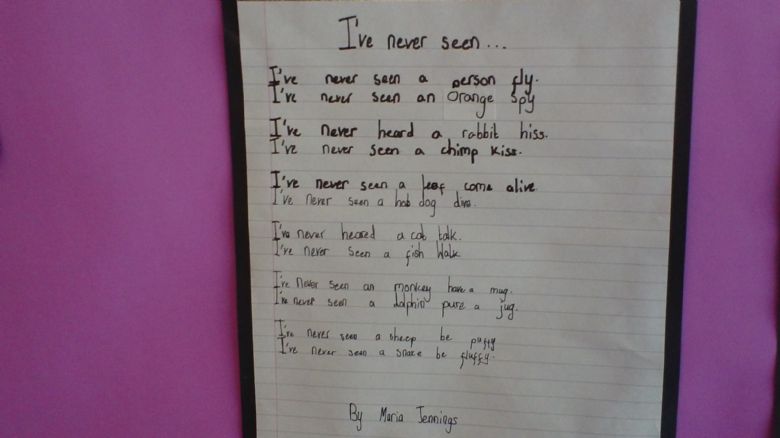 I've never seen...
I've never seen a person fly.
I've never seen an orange spy
I've never heard a rabbit hiss.
I've never seen a chimp kiss.
I've never seen a leaf come alive
I've never seen a hot dog dive.
I've never heared a cat talk.
I've never seen a fish walk
I've never seen an monkey have a mug.
I've never seen a dolphin pure a jug.
I've never seen a sheep be puffy
I've never seen a snake be fluffy.
By Maria Jennings